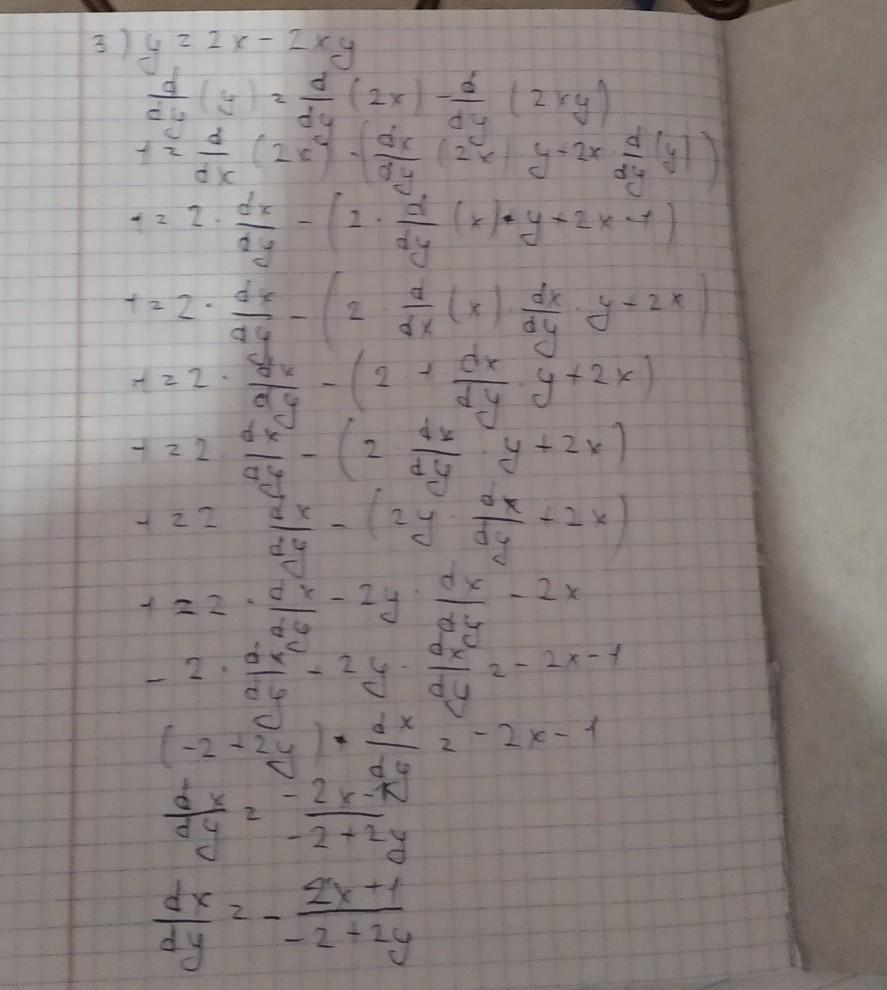 3) y = 2x - 2xy
d/dy (y) = d/dy (2x) - d/dy (2xy)
1 = d/dx (2x) - (dx/dy (2x) · y + 2x · d/dy (y))
1 = 2 · dx/dy - (2 · d/dy (x) · y + 2x · 1)
1 = 2 · dx/dy - (2 · d/dx (x) · dx/dy · y + 2x)
1 = 2 · dx/dy - (2 · 1 dx/dy y + 2x)
1 = 2 · dx/dy - (2 · dx/dy · y + 2x)
1 = 2 · dx/dy - (2y · dx/dy + 2x)
1 = 2 · dx/dy - 2y · dx/dy - 2x
- 2 · dx/dy + 2y · dx/dy = - 2x - 1
(-2 + 2y) · dx/dy = - 2x - 1
dx/dy = (-2x - 1)/(-2 + 2y)
dx/dy = - (2x + 1)/(-2 + 2y)